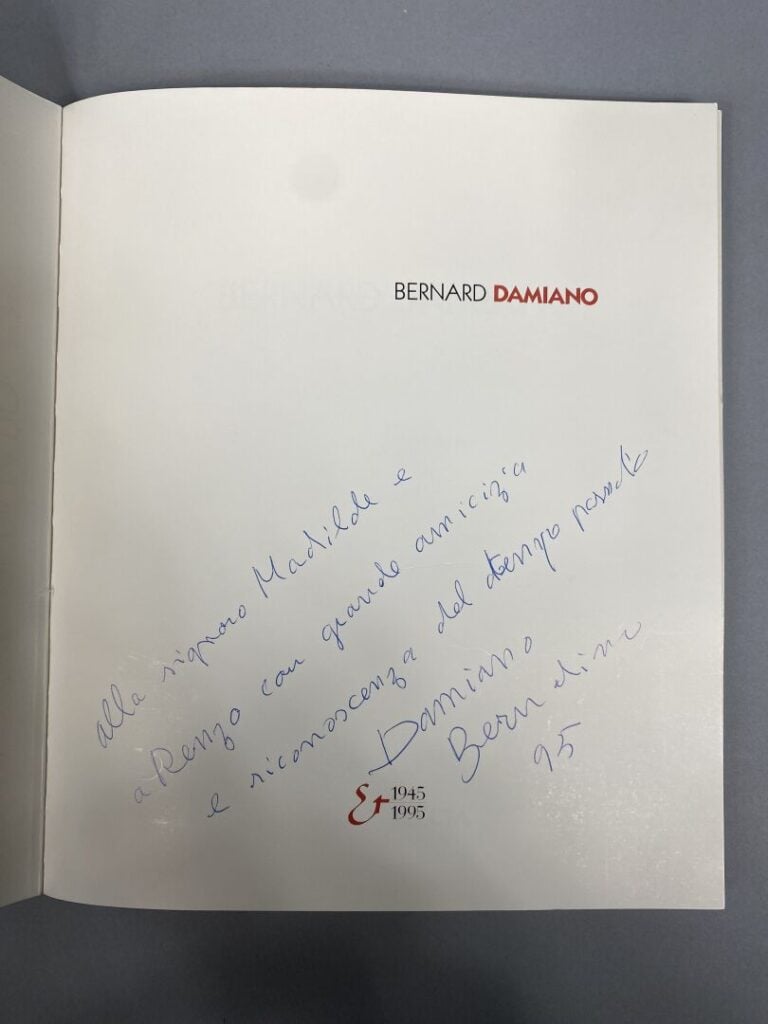 BERNARD DAMIANO
alla signora Madilde e
a Renzo con grande amicizia
e riconoscenza del tempo passato
Damiano
Bernardino
95
& 1945
1995